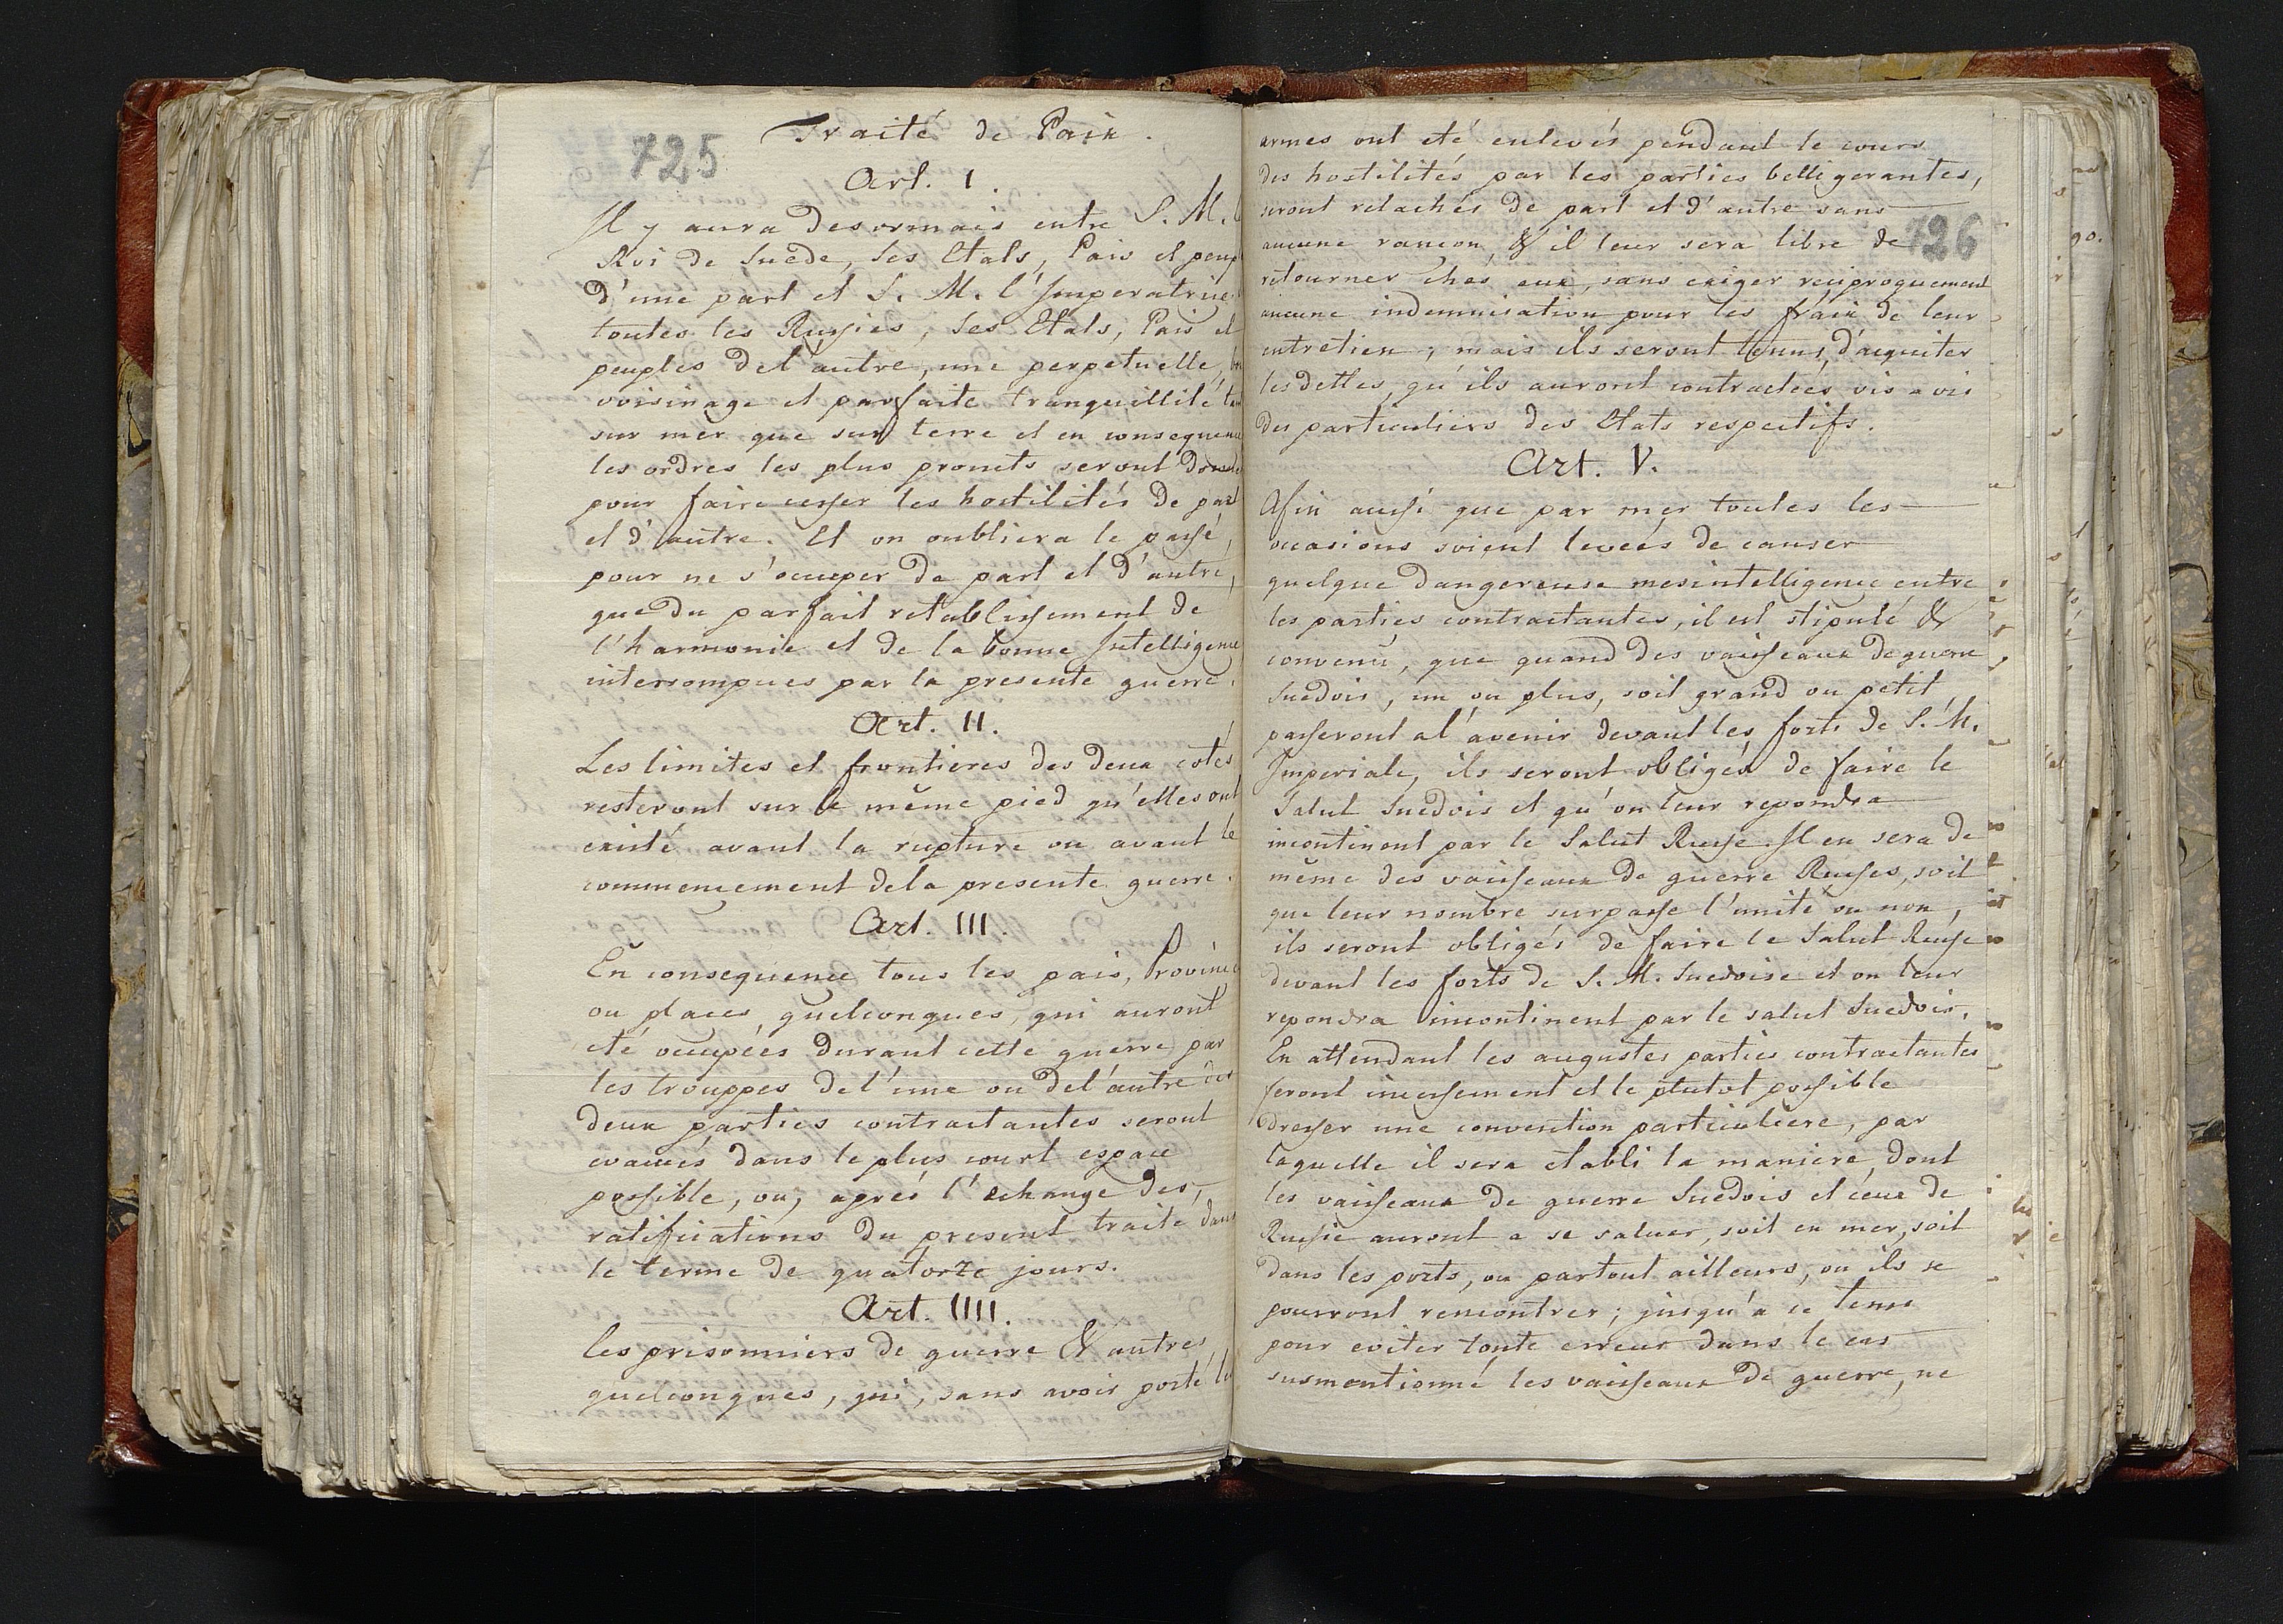 725
Traité de Paix.
Art. I.
Il y aura desormais entre S. M.
Roi de Suède, ses Etats, Pais et peup
d'une part et S. M. l'Imperatrice
toutes les Russies, ses Etats, Pais et
peuples del'autre, une perpetuelle,
voisinage et parfaite tranquillité
sur mer que sur terre et en consequence
les ordres les plus promts seront donnés
pour faire cesser les hostilités de part
et d'autre. Et on oubliera le passé,
pour ne s'occuper de part et d'autre,
que du parfait retablissement de
l'harmonie et de la bonne Intelligence
interrompues par la presente guerre.
Art. II.
Les limites et frontieres des deux cotés
resteront sur le même pied qu'elles ont
existé avant la rupture ou avant le
commencement dela presente guerre.
Art. III.
En consequence tous les pais, Provinc
ou places quelconques, qui auront
eté occupées durant cette guerre par
les trouppes del'une ou del'autre des
deux parties contractantes seront
evacués dans le plus court espace
possible, ou, après l'echange des
ratifications du present traité dans
le terme de quatorze jours.
Art. IIII.
Les prisonniers de guerre & autres,
quelconques, qui, sans avoir porté les
126
armes ont eté enlevés pendant le cours
des hostilités par les parties belligerantes,
seront relachés de part et d'autre sans
aucune rancon, & il leur sera libre de
retourner chés eux, sans exiger reciproquement
aucune indemnisation pour les fraix de leur
entretien; mais ils seront tenus d'acquiter
les dettes, qu'ils auront contractées vis a vis
des particuliers des Etats respectifs.
Art. V.
Afin aussi que par mer toutes les
occasions soient levées de causer
quelque dangereuse mesintelligence entre
les parties contractantes, il est stipulé &
convenu, que quand des vaisseaux de guerre
Suedois, un ou plus, soit grand ou petit
passeront al'avenir devant les forts de S. M.
Imperiale, ils seront obligés de faire le
Salut Suedois et qu'on leur repondra
incontinent par le Salut Russe. Il en sera de
même des vaisseaux de guerre Russes, soit
que leur nombre surpasse l'unité ou non,
ils seront obligés de faire le Salut Russe
devant les forts de S. M. Suedoise et on leur
repondra incontinent par le salut Suedois.
En attendant les augustes parties contractantes
feront incessement et le plutot possible
dresser une convention particuliere, par
laquelle il sera etabli la maniere, dont
les vaisseaux de guerre Suedois et ceux de
Russie auront a se saluer, soit en mer, soit
dans les ports, ou partout ailleurs, ou ils se
pourront rencontrer; jusqu'à ce tems
pour eviter toute erreur dans le cas
susmentionné les vaisseaux de guerre, ne